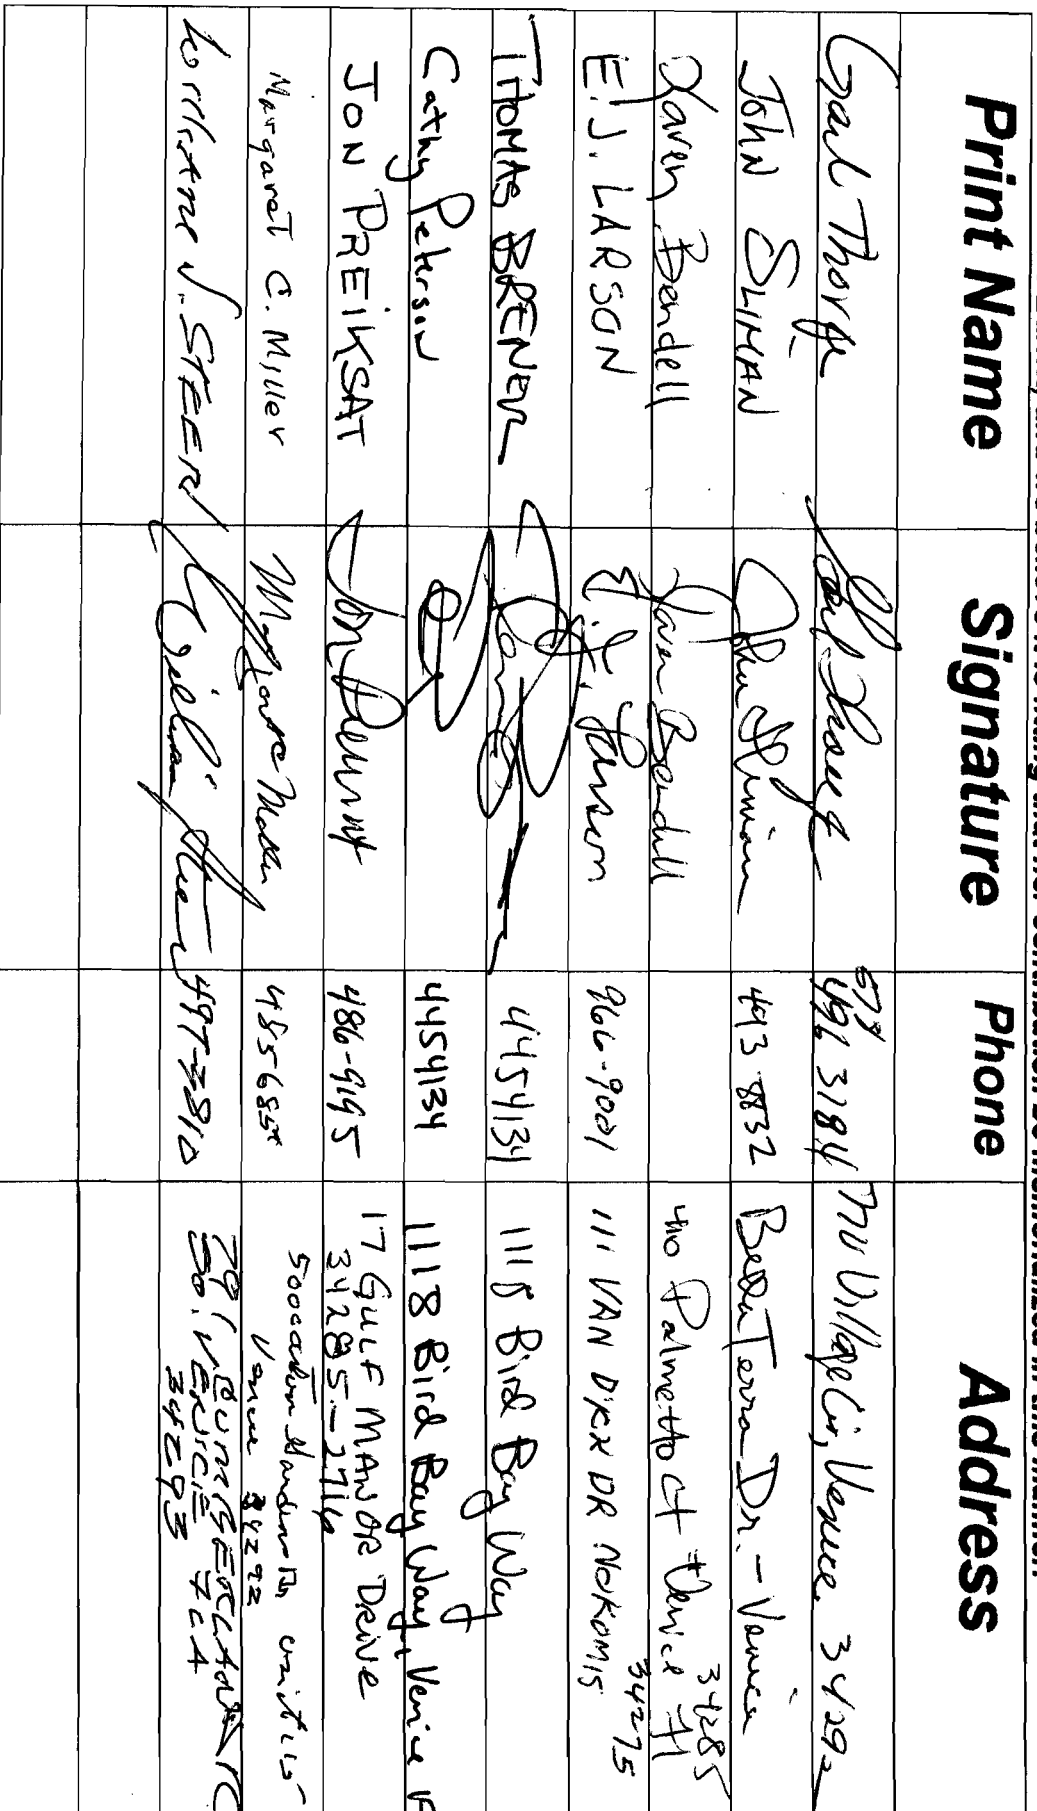 Print Name Signature Phone Address
Gail Thorpe 678 496 3784 Village Cir, Venice 34292
JOHN SLIMAN John Sliman 493 8832 Bella Terra Dr. - Venice
Karen Bendell Karen Bendell 410 Palmetto Ct Venice Fl 34285
E.J. LARSON E. J. Larson 966-9001 111 VAN DYKE DR NOKOMIS 34275
THOMAS BRENER 4454134 1118 Bird Bay Way
Cathy Peterson 4454134 1118 Bird Bay Way, Venice
JON PREIKSAT 486-9195 17 GULF MANOR DRIVE
34285-2716
Margaret C. Miller 485 685 500
Venice 34292
J. STEEN 497-3810
SO. VENICE FLA
34293